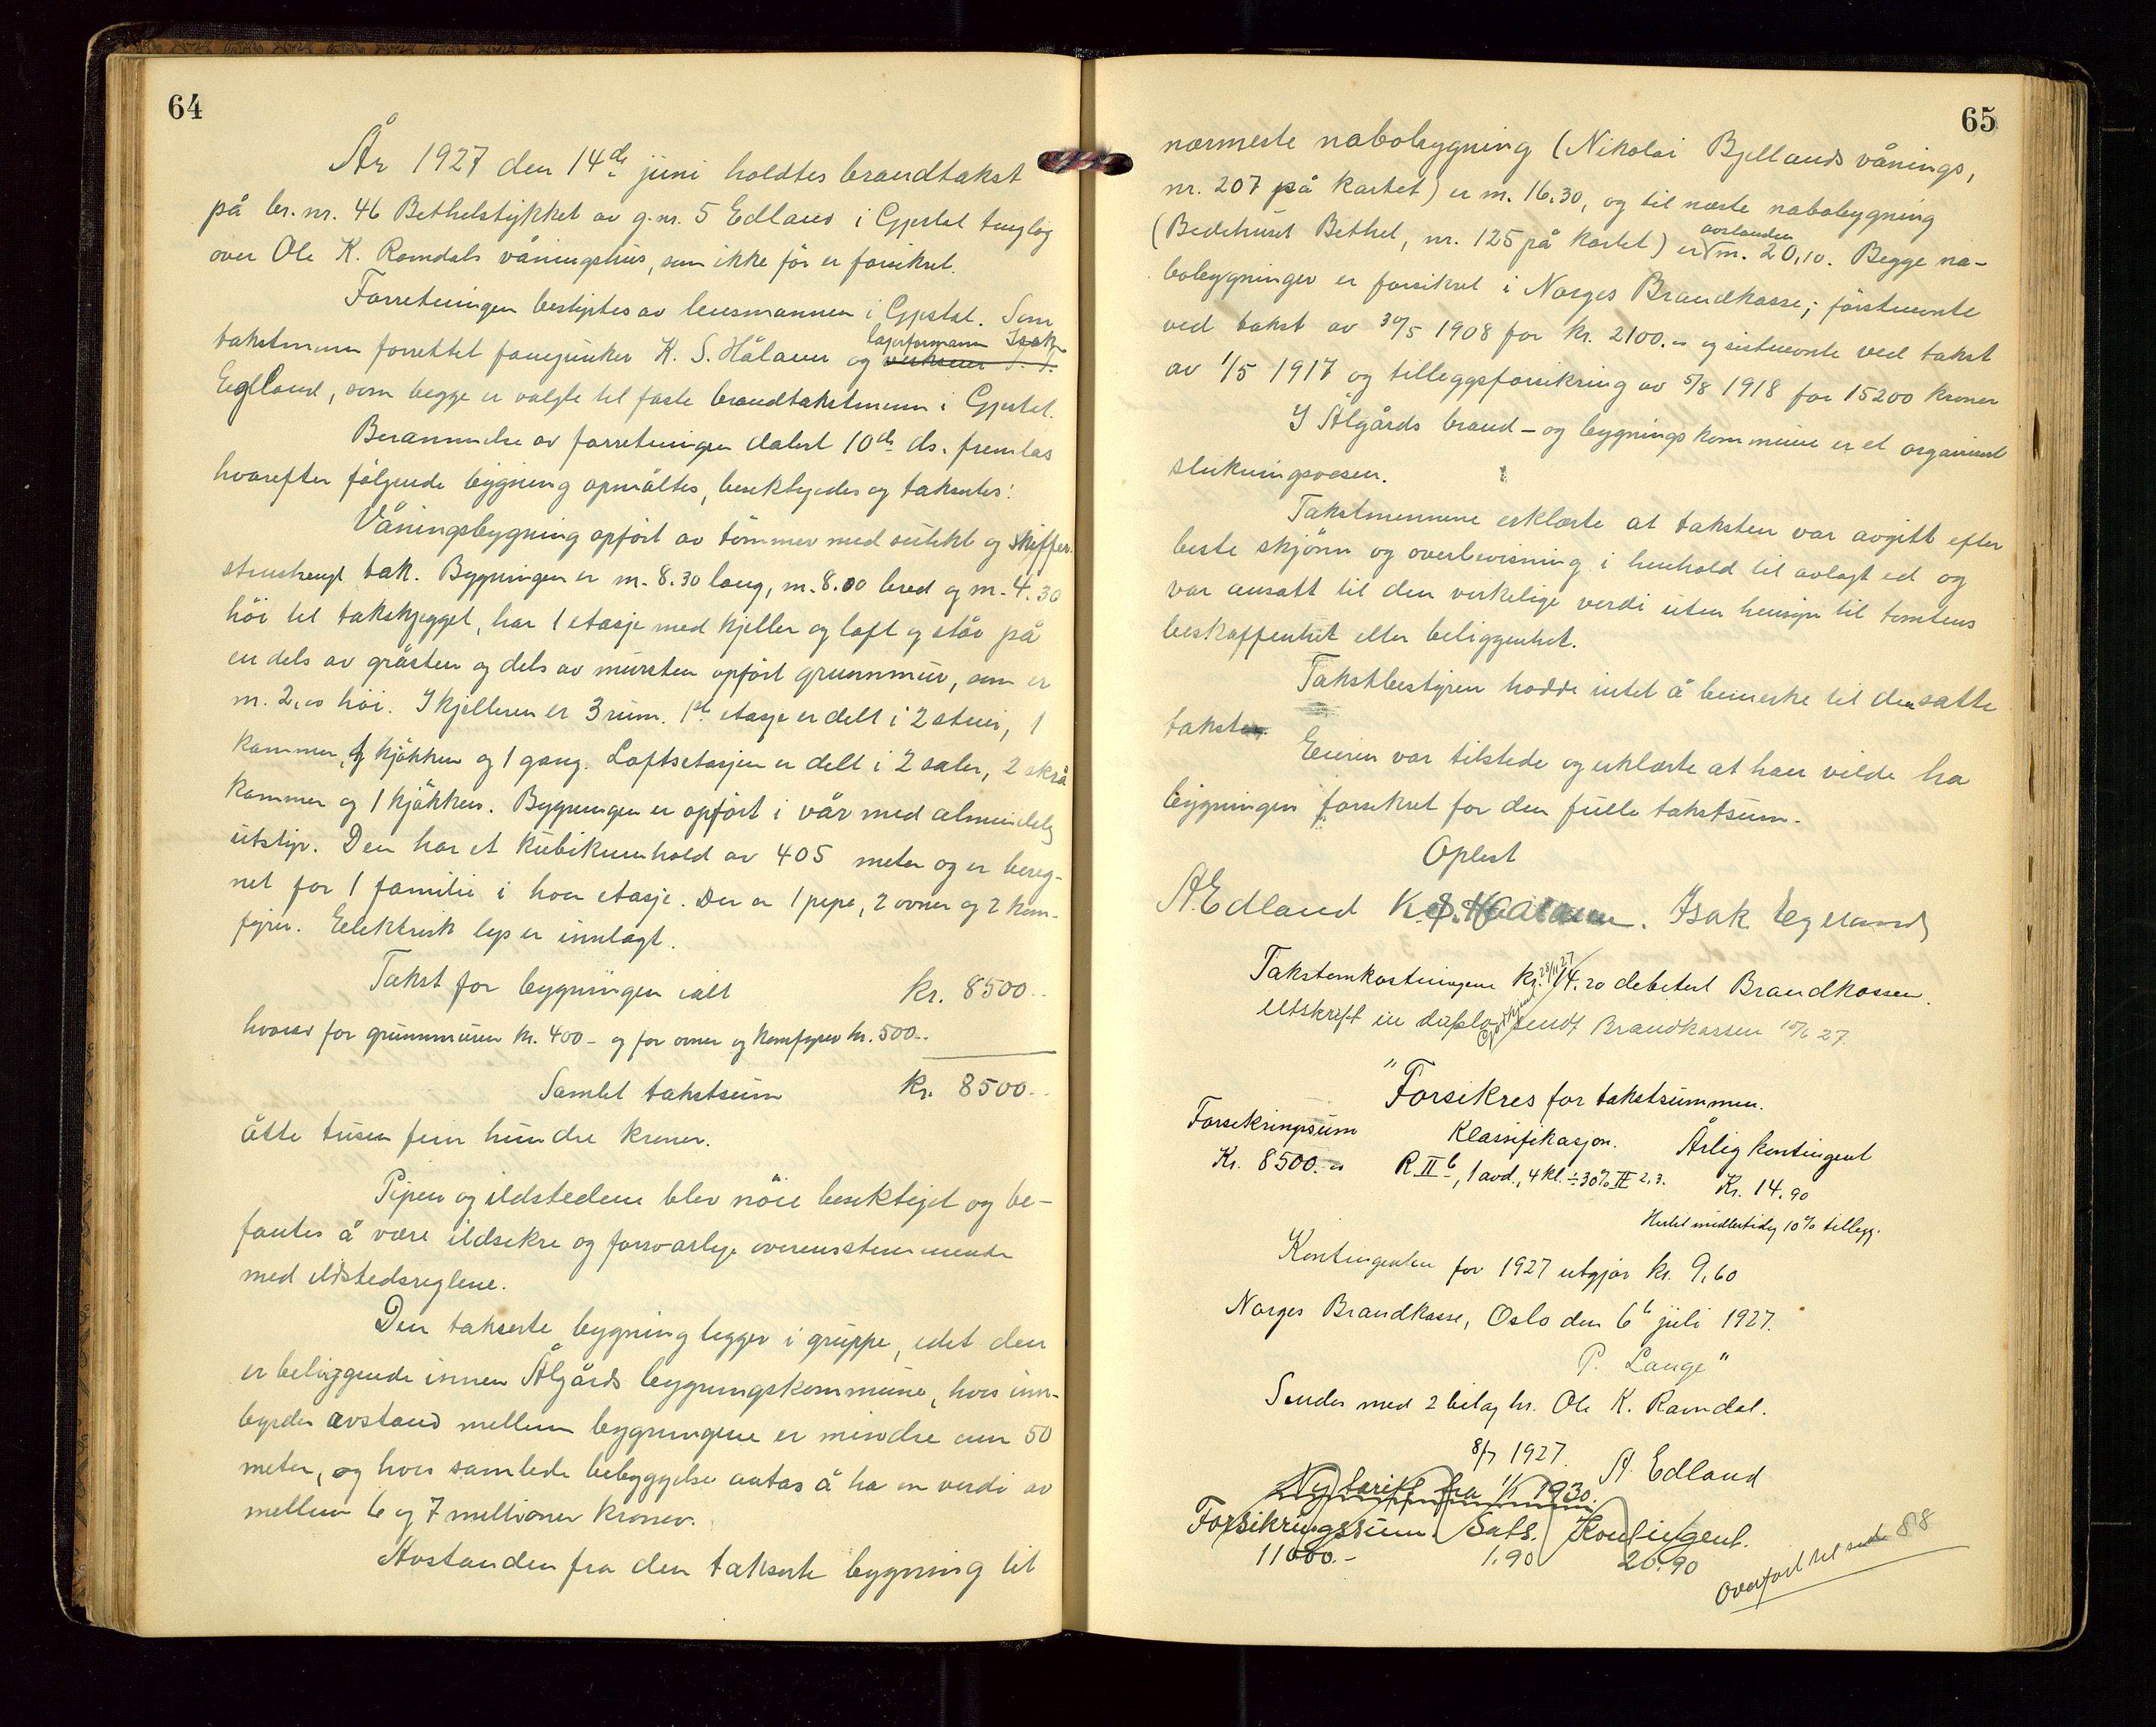 64
År 1927 den 14de juni holdtes brandtakst
på br. nr. 46 Bethelstykket av g. nr. 5 Edland i Gjestal tinglag
over Ole K. Ramdals våningshus, som ikke før er forsikret.
Forretningen bestyrtes av lensmannen i Gjestal. Som
lagerformann Isak
takstmenn forrettet fanejunker K. S. Håland og
Egeland, som begge er valgte til faste brandtakstmenn i Gjestal.
Berammelse av forretningen datert 10de ds. fremlas
hvorefter følgende bygning opmåltes, besiktigedes og takstertes:
Våningsbygning opført av tømmer med sutekt og skiffer-
stenshengt tak. Bygningen er m. 8.30 lang, m. 8.00 bred og m. 4.30
høi til takskjegget, har 1 etasje med kjeller og loft og står på
en dels av gråsten og dels av mursten opført grunnmur, som er
m. 2,00 høi. I kjelleren er 3 rum. 1ste etasje er delt i 2 stuer, 1
kammer, 1 kjøkken og 1 gang. Loftsetasjen er delt i 2 saler, 2 skrå
kammer og 1 kjøkken. Bygningen er opført i vår med almindelig
utstyr. Den har et kubikinnhold av 405 meter og er bereg-
net for 1 familie i hver etasje. Der er 1 pipe, 2 ovner og 2 kom-
fyrer. Elektrisk lys er innlagt.
Takst for bygningen ialt kr. 8500..
hvorav for grunnmuren kr. 400 - og for ovner og komfyrer kr. 500..
Samlet takstsum kr. 8500..
åtte tusen fem hundre kroner.
Pipen og ildstedene blev nöie besiktiget og be-
fantes å være ildsikre og forsvarlige overensstemmende
med ildstedsreglene.
Den takserte bygning ligger i gruppe, idet den
er beliggende innen Ålgårds bygningskommune, hvis inn-
byrdes avstand mellem bygningene er mindre enn 50
meter, og hvis samlede bebyggelse antas å ha en verdi av
mellem 6 og 7 millioner kroner.
Avstanden fra den takserte bygning til
65
nærmeste nabobygning (Nikolai Bjellands vånings,
nr. 207 på kartet) er m. 16.30, og til næste nabobygning
avstanden
(Bedehuset Bethel, nr. 125 på kartet) er m. 20,10. Begge na-
bobygninger er forsikret i Norges Brandkasse; førstnevnte
ved takst av 30/5 1908 for kr. 2100.- og sistnevnte ved takst
av 1/5 1917 og tilleggsforsikring av 5/8 1918 for 15200 kroner
I Ålgårds brand- og bygningskommune er et organisert
slukningsvesen.
Takstmennene erklærte at taksten var avgitt efter
beste skjønn og overbevisning i henhold til avlagt ed og
var ansatt til den virkelige verdi uten hensyn til tomtens
beskaffenhet eller beliggenhet.
Takstbestyren hadde intet å bemerke til den satte
takst.
Eieren var tilstede og erklærte at han vilde ha
bygningen forsikret for den fulle takstsum.
Oplest
A. Edland K. S. Haaland. Isak Egeland
Takstomkostningene kr. 14.20 debitert Brandkassen.
Godkjent 25/11 27
Utskrift in duplo sendt Brandkassen 15/6 27.
"Forsikres for takstsummen.
Forsikringssum Klassifikasjon. Årlig kontingent
Kr. 8500.- R II b, 1 avd., 4 kl. ÷ 30% II 2,3. Kr. 14.90
Hertil midlertidig 10% tillegg.
Kontingenten for 1927 utgjør kr. 9,60
Norges Brandkasse, Oslo den 6te juli 1927.
P. Lange"
Sendes med 2 bilag hr. Ole K. Ramdal.
8/7 1927. A. Edland
Ny tariff fra 1/1 1930.
Forsikringssum. Sats. Kontingent.
11000.- 1.90 20.90
Overført til side 88